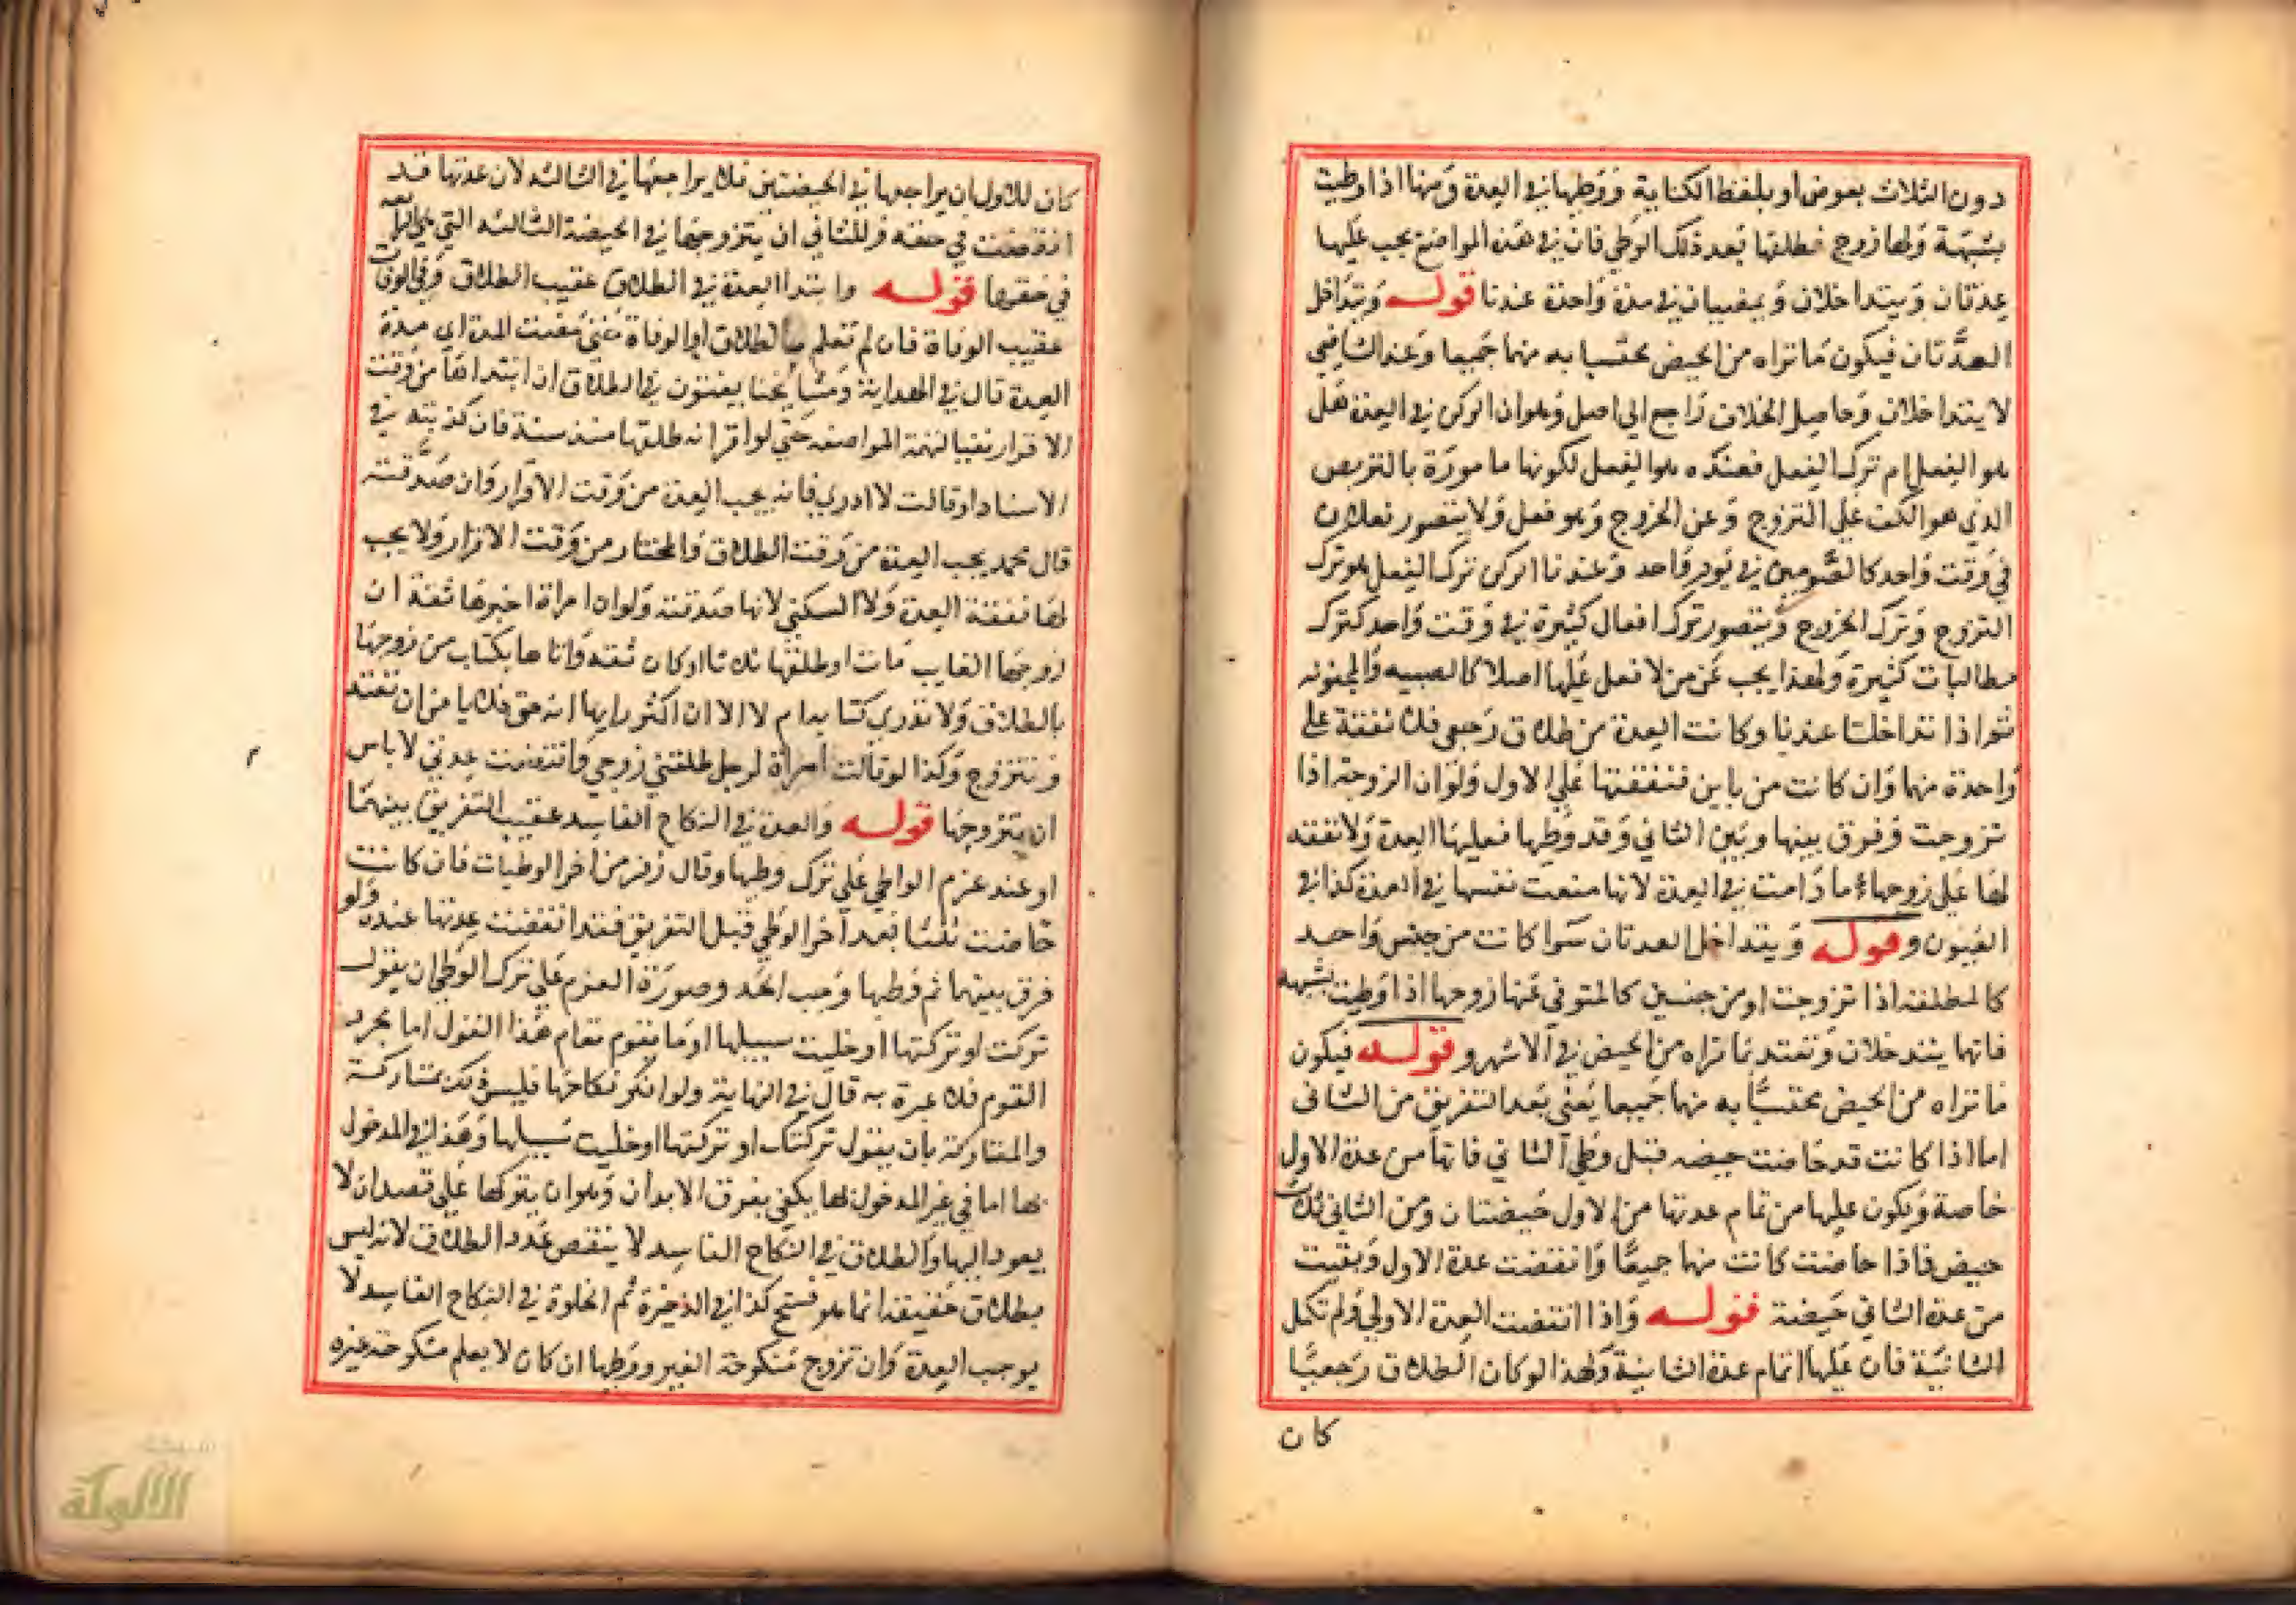 دون الثلاث بعوض او بلفظ الكناية ووطيها في العدة ومنها اذا وطيت
بشبهة ولها زوج فطلقها بعد ذلك الوطي فان في هذه المواضع يجب عليها
عدتان ويتداخلان ويمضيان في مدة واحدة عندنا قوله وتتداخل
العدتان فيكون ما تراه من الحيض محتسبا به منهما جميعا وعند الشافعي
لا يتداخلان وحاصل الخلاف راجع الى اصل وهو ان الركن في العدة هل
هو الفعل ام ترك الفعل فعنده هو الفعل لكونها مامورة بالتربص
الذي هو الكف على التزوج وعن الخروج وهو فعل ولا يتصور فعلان
في وقت واحد كالصومين في يوم واحد وعندنا الركن ترك الفعل هو ترك
التزوج وترك الخروج ويتصور ترك افعال كثيرة في وقت واحد كترك
مطالبات كثيرة ولهذا يجب عن من لا فعل عليها اصلا كالصبيه والمجنونه
ثم اذا تداخلتا عندنا وكانت العدة من طلاق رجعي فلا نفقة على
واحدة منهما وان كانت من باين فنفقتها على الاول ولو ان الزوجة اذا
تزوجت وفرق بينها وبين الثاني وقد وطيها فعليها العدة ولا نفقه
لها على زوجها ما دامت في العدة لانها منعت نفسها في العدة كذا في
العيون و قوله ويتداخل العدتان سوا كانت من جنس واحد
كالمطلقه اذا تزوجت او من جنسين كالمتوفى عنها زوجها اذا وطيت بشبهه
فانها يتدخلان وتعتد بما تراه من الحيض في الاشهر و قوله فيكون
ما تراه من الحيض محتسبًا به منهما جميعا يعنى بعد التفريق من الثانى
اما اذا كانت قد حاضت حيضه قبل وطي الثاني فانها من عدة الاول
خاصة ويكون عليها من تمام عدتها من الاول حيضتان ومن الثانى ثلاث
حيض فاذا حاضت كانت منهما جميعًا وانقضت عدة الاول وبقيت
من عدة الثاني حيضة قوله واذا انقضت العدة الاولى ولم تكمل
الثانية فان عليها اتمام عدة الثانية ولهذا لو كان الطلاق رجعيًا
كان
كان للاول ان يراجعها في الحيضتين فلا يراجعها في الثالثه لان عدتها قد
انقضت في حقه وللثاني ان يتزوجها في الحيضة الثالثه التي
في حقها قوله وابتدا العدة في الطلاق عقيب الطلاق وفي الوفات
عقيب الوفاة فان لم تعلم بالطلاق او الوفاة حتى مضت المدة اي مدة
العدة قال في الهداية ومشايخنا يفتون في الطلاق ان ابتداها من وقت
الاقرار نفيا لتهمة المواضعه حتى لو اقر انه طلقها منذ سنة فان كذبته في
الاسناد او قالت لا ادري فانه يجب العدة من وقت الاقرار وان صدقت
قال محمد يجب العدة من وقت الطلاق والمختار من وقت الاقرار ولا يجب
لها نفقة العدة ولا السكنى لانها صدقته ولو ان امراة اخبرها ثقة ان
زوجها الغايب مات او طلقها ثلاثا او كان ثقه واتاها بكتاب من زوجها
بالطلاق ولا تدري كتابه ام لا الا ان اكثر رايها انه حق فلا باس ان تعتد
وتتزوج وكذا لو قالت امراة لرجل طلقني زوجي وانقضت عدتي لا باس
ان يتزوجها قوله والعدة في النكاح الفاسد عقيب التفريق بينهما
او عند عزم الواطي على ترك وطيها وقال زفر من اخر الوطيات فان كانت
حاضت ثلثا بعد اخر الوطي قبل التفريق فقد انقضت عدتها عنده ولو
فرق بينهما ثم وطيها وجب الحد وصورة العزم على ترك الوطي ان يقول
تركت او تركتها او خليت سبيلها او ما يقوم مقام هذا القول اما مجرد
القوم فلا عبرة به قال في النهاية ولو انكر نكاحها فليس ذلك متاركة
والمتاركة بان يقول تركتك او تركتها او خليت سبيلها وهذا في المدخول
بها اما في غير المدخول لها يكفي بفرق الابدان وهو ان يتركها على قصد ان لا
يعود اليها والطلاق في النكاح الفاسد لا ينقص عدد الطلاق لانه ليس
بطلاق حقيقة انما هو فسخ كذا في الذخيرة ثم الخلوة في النكاح الفاسد لا
يوجب العدة وان تزوج منكوحة الغير ووطيها ان كان لا يعلم منكوحة غيره
الألوكة